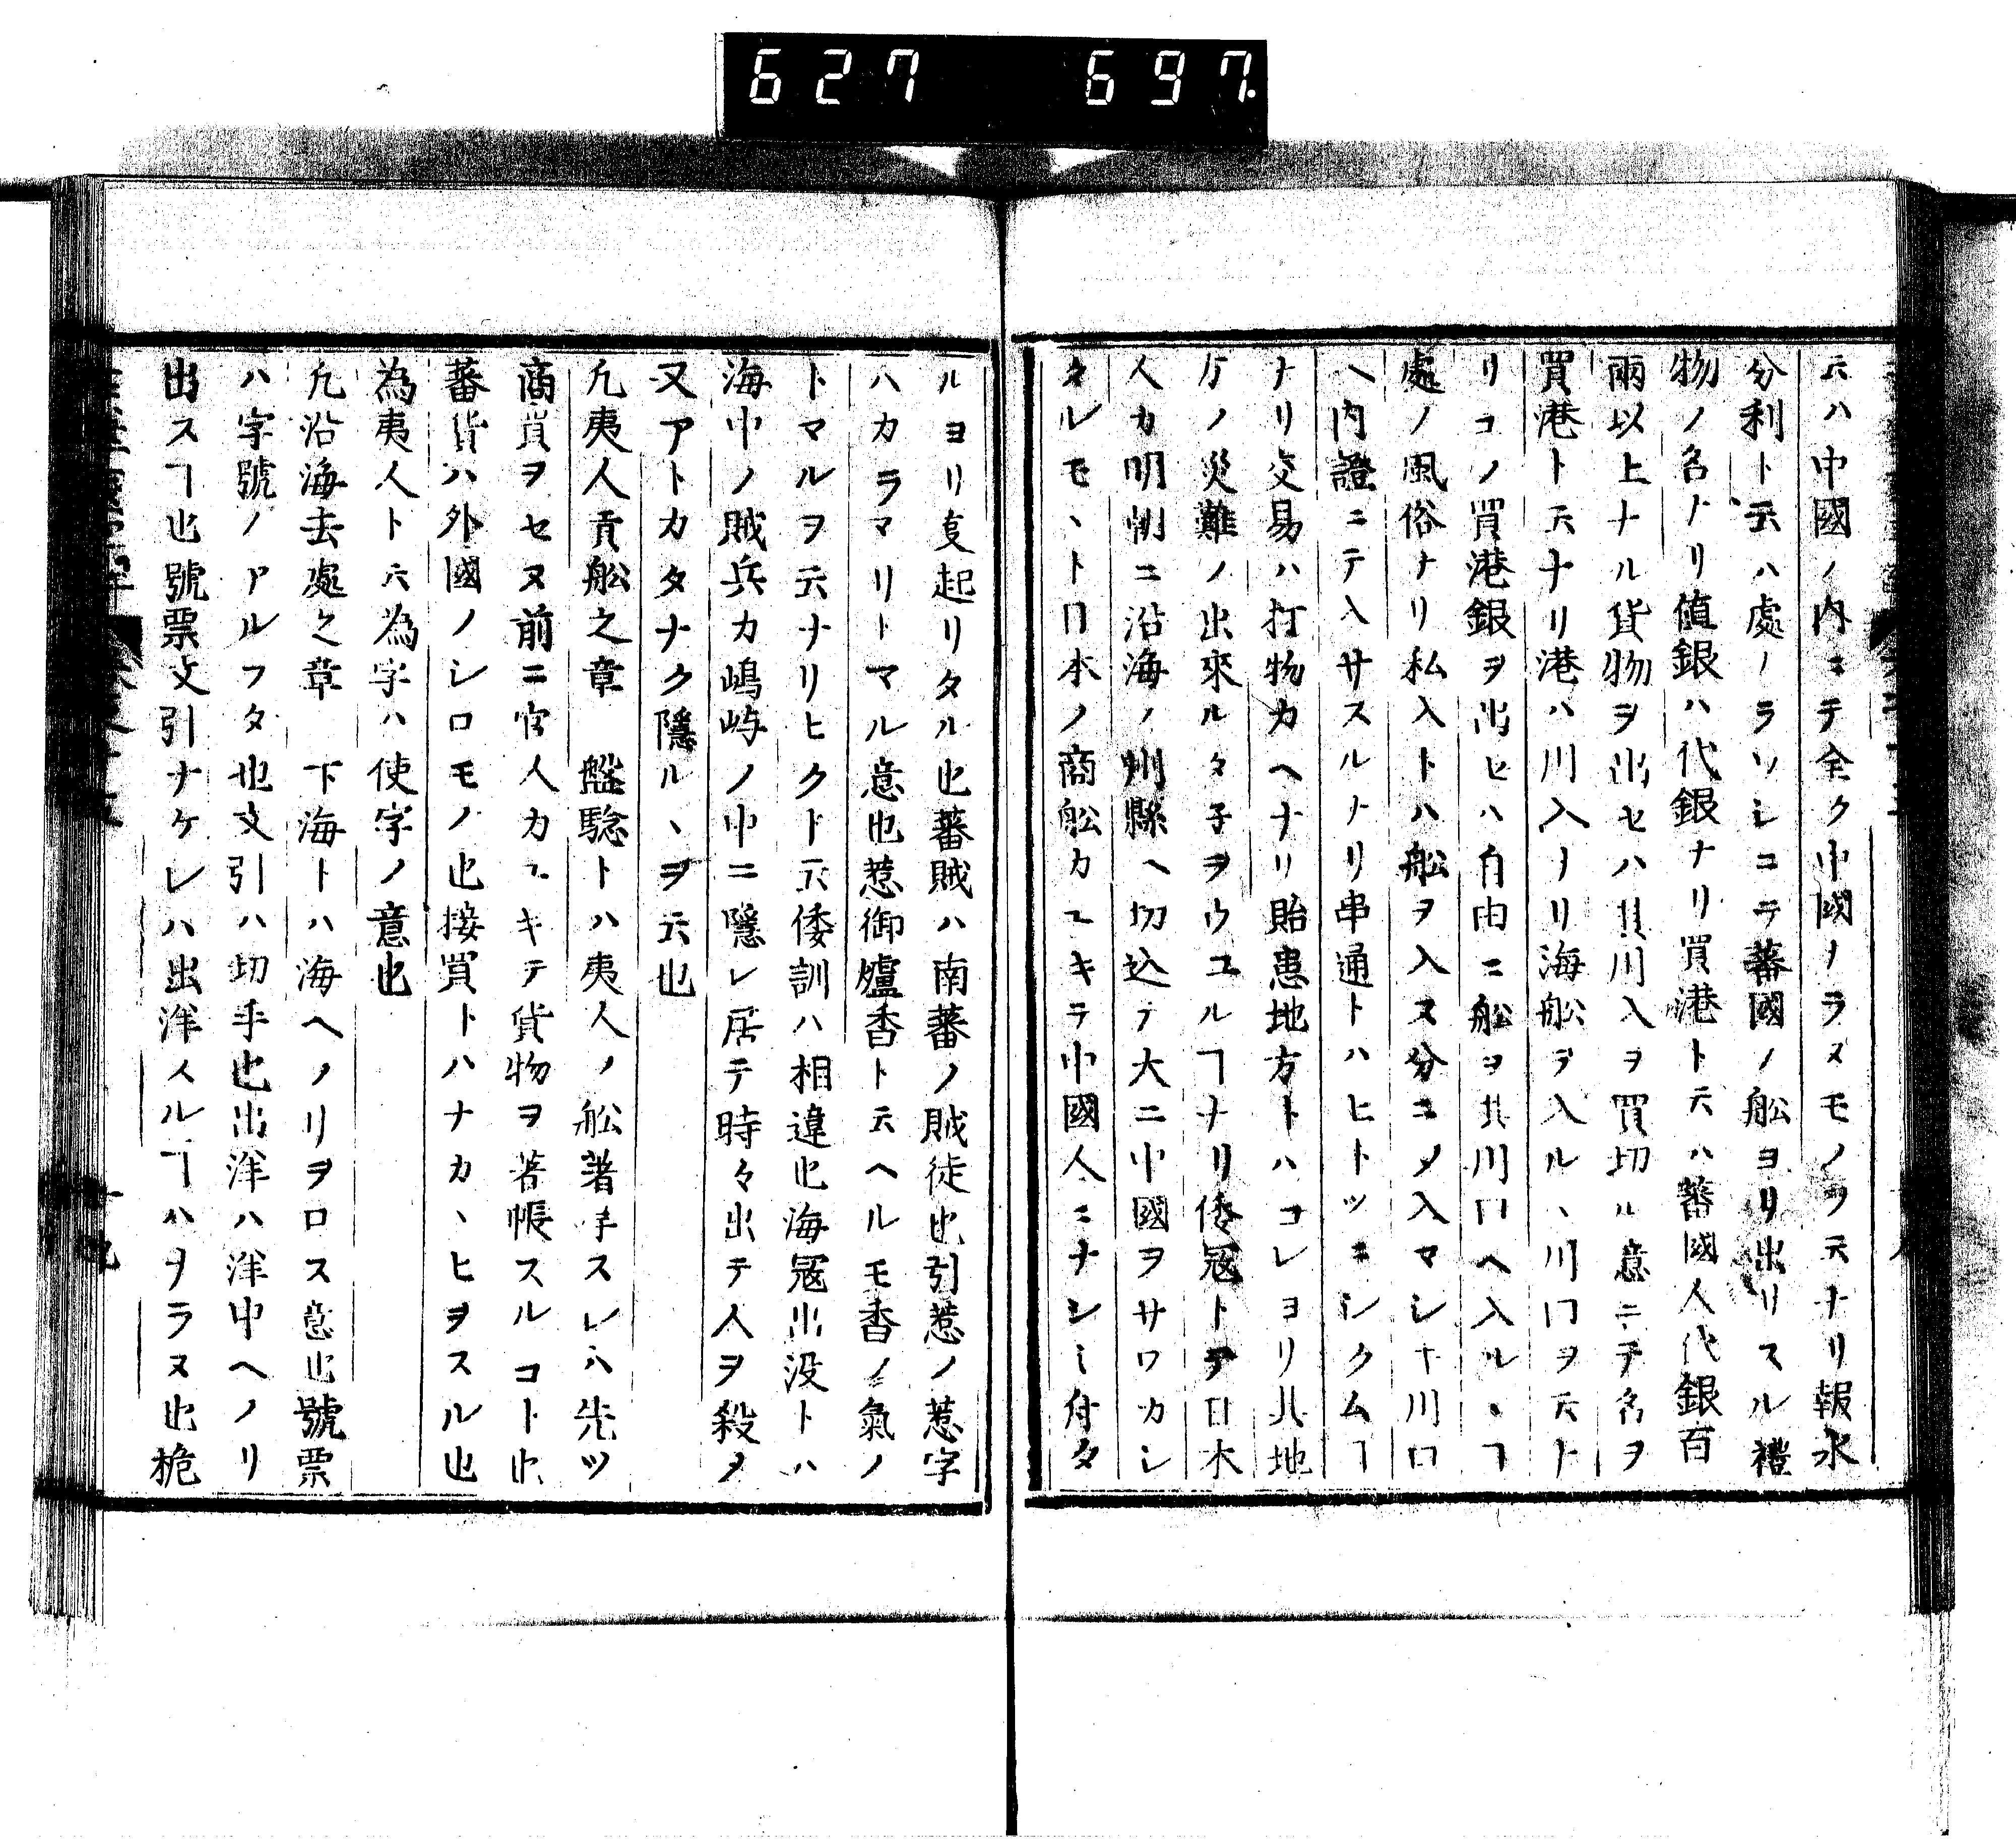 627 697
云ハ中國ノ内ニテ全ク中國ノラヌモノヲ云ナリ報水
分利ト云ハ處ノラソシニテ蕃國ノ舩ヨリ出リスル禮
物ノ名ナリ値銀ハ代銀ナリ買港ト云ハ蕃國人代銀百
兩以上ナル貨物ヲ出セハ其川入ヲ買切ル意ニテ名ヲ
買港ト云ナリ港ハ川入ナリ海舩ヲ入ル丶川口ヲ云ト
リコノ買港銀ヲ出セハ自由ニ舩ヲ其川口ヘ入ル丶ヿ
處ノ風俗ナリ私入トハ舩ヲ入ヌ分ニメ入マシキ川口
ヘ内證ニテ入サスルナリ串通トハヒトツニシクムヿ
ナリ交易ハ打物カヘナリ貽患地方トハコレヨリ其地
方ノ災難ノ出來ルタ子ヲウユルヿナリ倭冦トテ日本
人カ明朝ニ沿海ノ州縣ヘ切込テ大ニ中國ヲサワカシ
タルモ丶ト日本ノ商舩カコキテ中國人ニナシミ付タ
ルヨリ叓起リタル也蕃賊ハ南蕃ノ賊徒也引惹ノ惹字
ハカラマリトマル意也惹御爐香ト云ヘルモ香ノ氣ノ
トマルヲ云ナリヒクト云倭訓ハ相違也海冦出没トハ
海中ノ賊兵カ嶋嶼ノ中ニ隱レ居テ時々出テ人ヲ殺メ
又アトカタナク隱ル丶ヲ云也
凢夷人貢舩之章　盤騐トハ夷人ノ舩著手スレハ先ツ
商買ヲセヌ前ニ官人カユキテ貨物ヲ著帳スルコト也
蕃貨ハ外國ノシロモノ也接買トハナカ丶ヒヲスル也
為夷人ト云為字ハ使字ノ意也
凢沿海去處之章　下海トハ海ヘノリヲロス意也號票
ハ字號ノアルフタ也文引ハ切手也出洋ハ洋中ヘノリ
出スヿ也號票文引ナケレハ出洋スルヿハナラヌ也桅